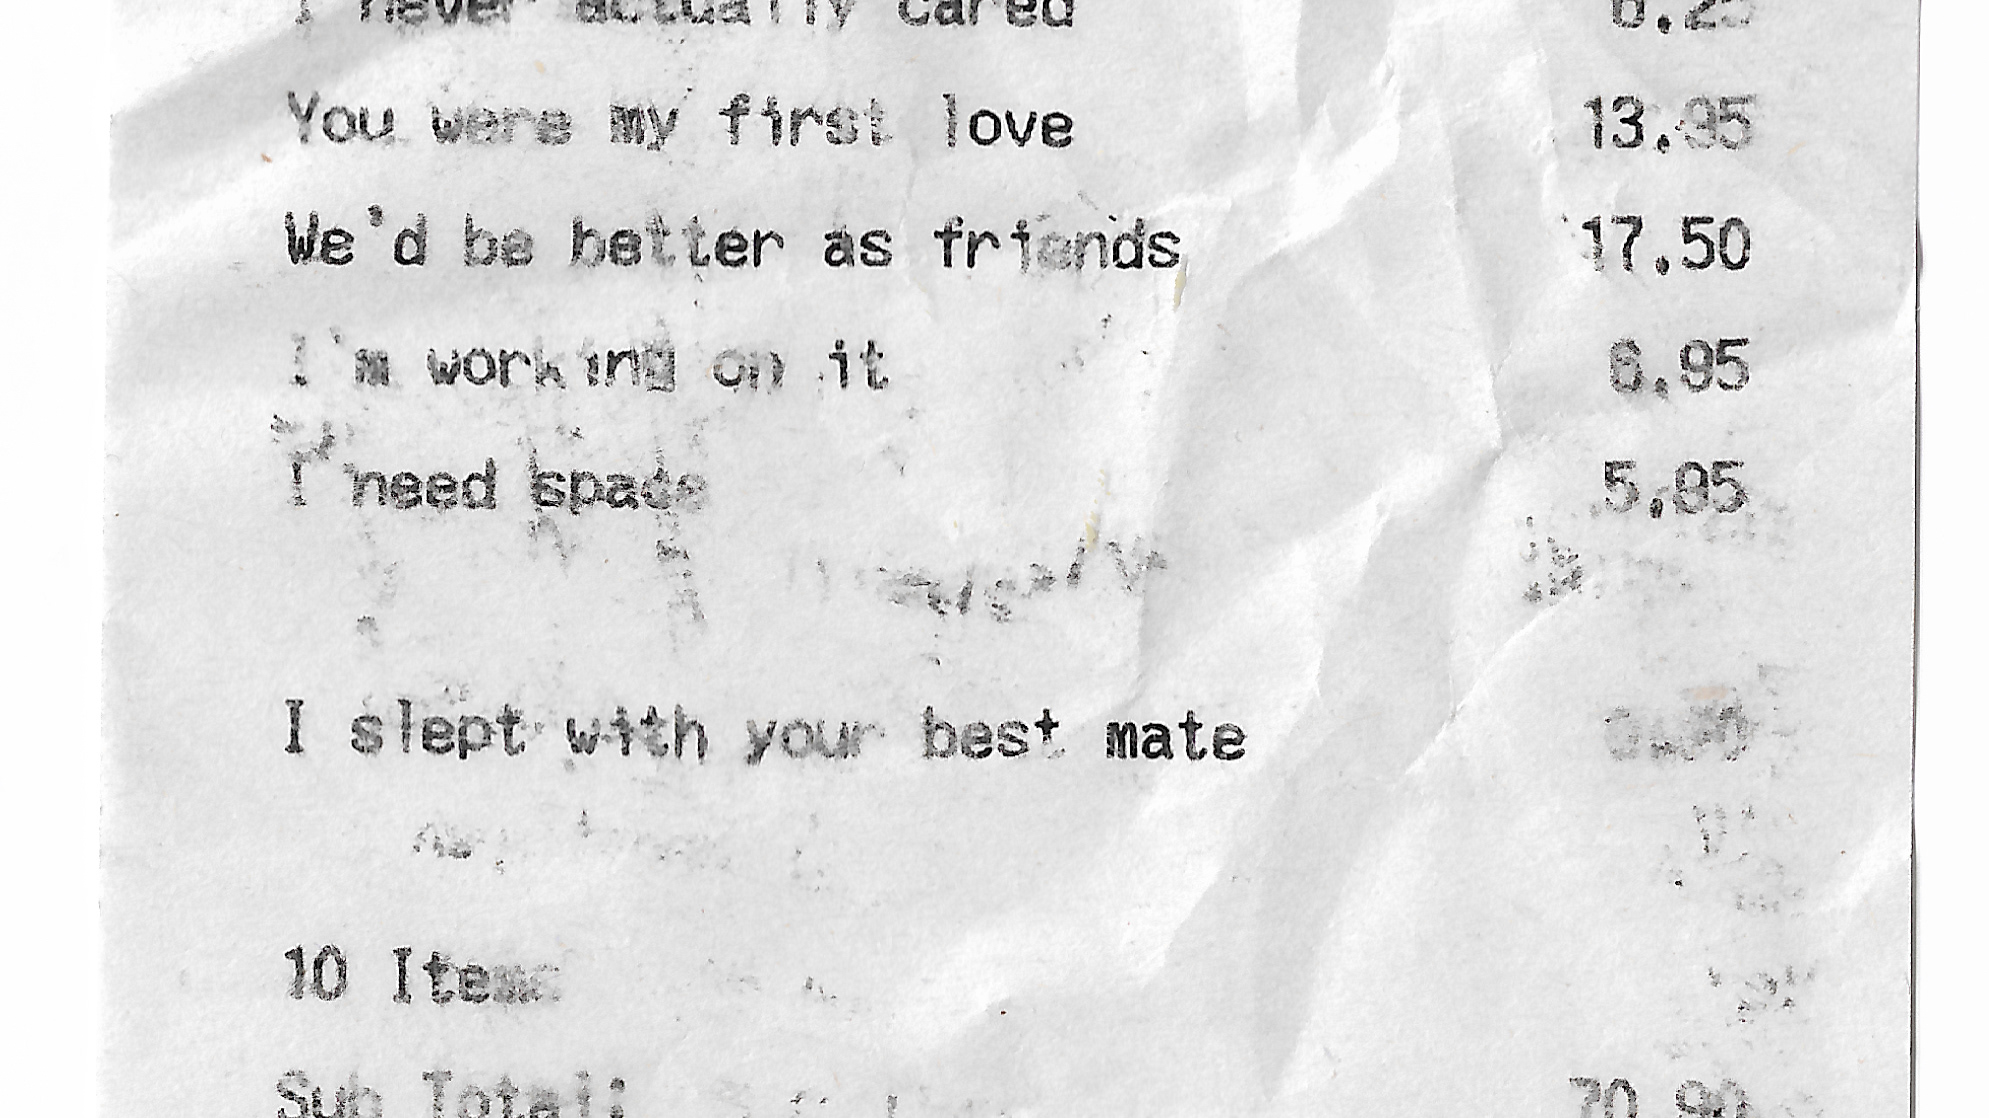 I never actually cared 6.25
You were my first love 13.95
We'd be better as friends 17.50
I'm working on it 6.95
I need space 5.95
I slept with your best mate
10 Items
Sub Total: 70.90